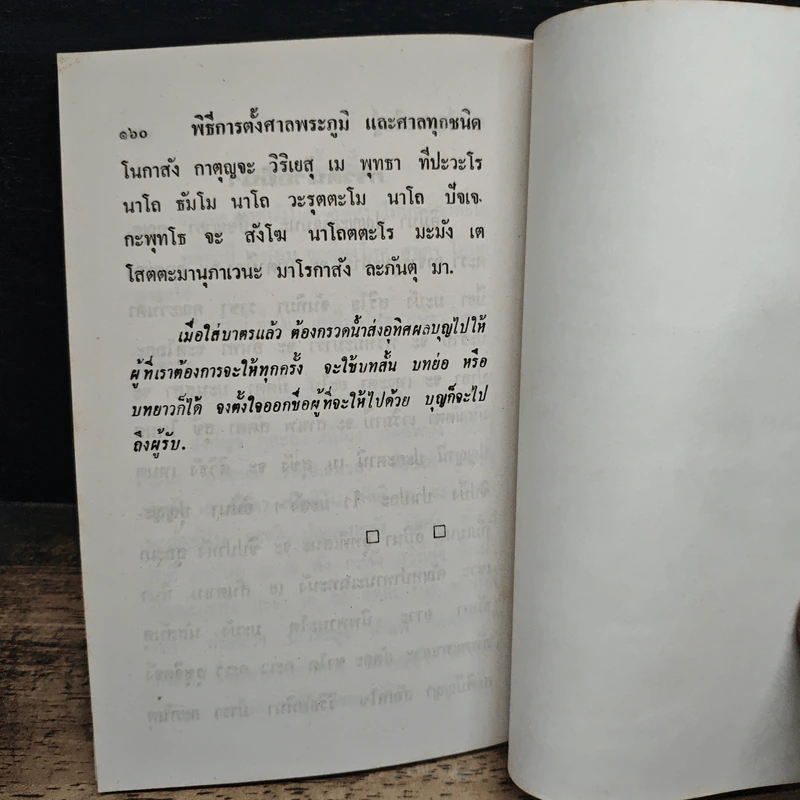 ๑๖๐ พิธีการตั้งศาลพระภูมิ และศาลทุกชนิด
โนกาสัง กาตุญจะ วิริเยสุ เม พุทธา ทีปะวะโร
นาโถ ธัมโม นาโถ วะรุตตะโม นาโถ ปัจเจ.
กะพุทโธ จะ สังโฆ นาโถตตะโร มะมัง เต
โสตตะมานุภาเวนะ มาโรกาสัง ละภันตุ มา.
เมื่อใส่บาตรแล้ว ต้องกรวดน้ำส่งอุทิศผลบุญไปให้
ผู้ที่เราต้องการจะให้ทุกครั้ง จะใช้บทสั้น บทย่อ หรือ
บทยาวก็ได้ จงตั้งใจออกชื่อผู้ที่จะให้ไปด้วย บุญก็จะไป
ถึงผู้รับ.